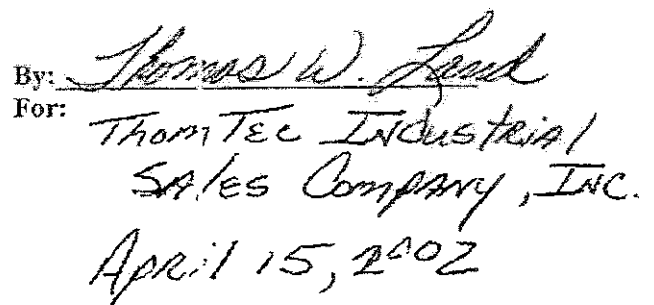 By: Thomas W. Land
For: ThomTec Industrial
Sales Company, Inc.
April 15, 2002